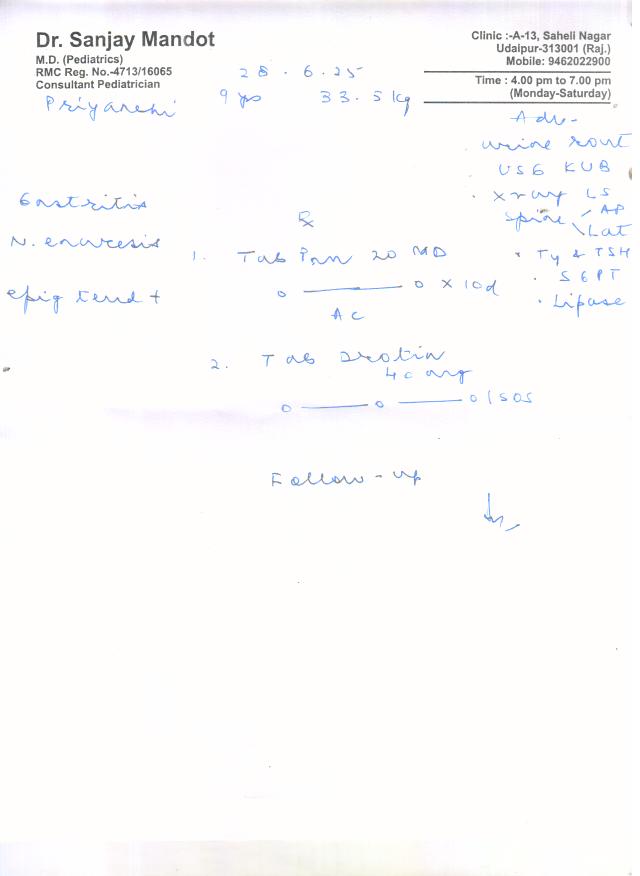 Dr. Sanjay Mandot
M.D. (Pediatrics)
RMC Reg. No.-4713/16065
Consultant Pediatrician
Clinic :-A-13, Saheli Nagar
Udaipur-313001 (Raj.)
Mobile: 9462022900
Time : 4.00 pm to 7.00 pm
(Monday-Saturday)
28.6.25
9 yrs 33.5 kg
Adv-
urine rout
USG KUB
xray LS
Spine AP
Lat
T4 & TSH
SGPT
Lipase
Gastritis
N. enuresis
epig tend +
Rx
1. Tab Pan 20 MD
0 — 0 x 10d
AC
2. Tab Drotin
40 mg
0 — 0 — 0 / SOS
Follow-up